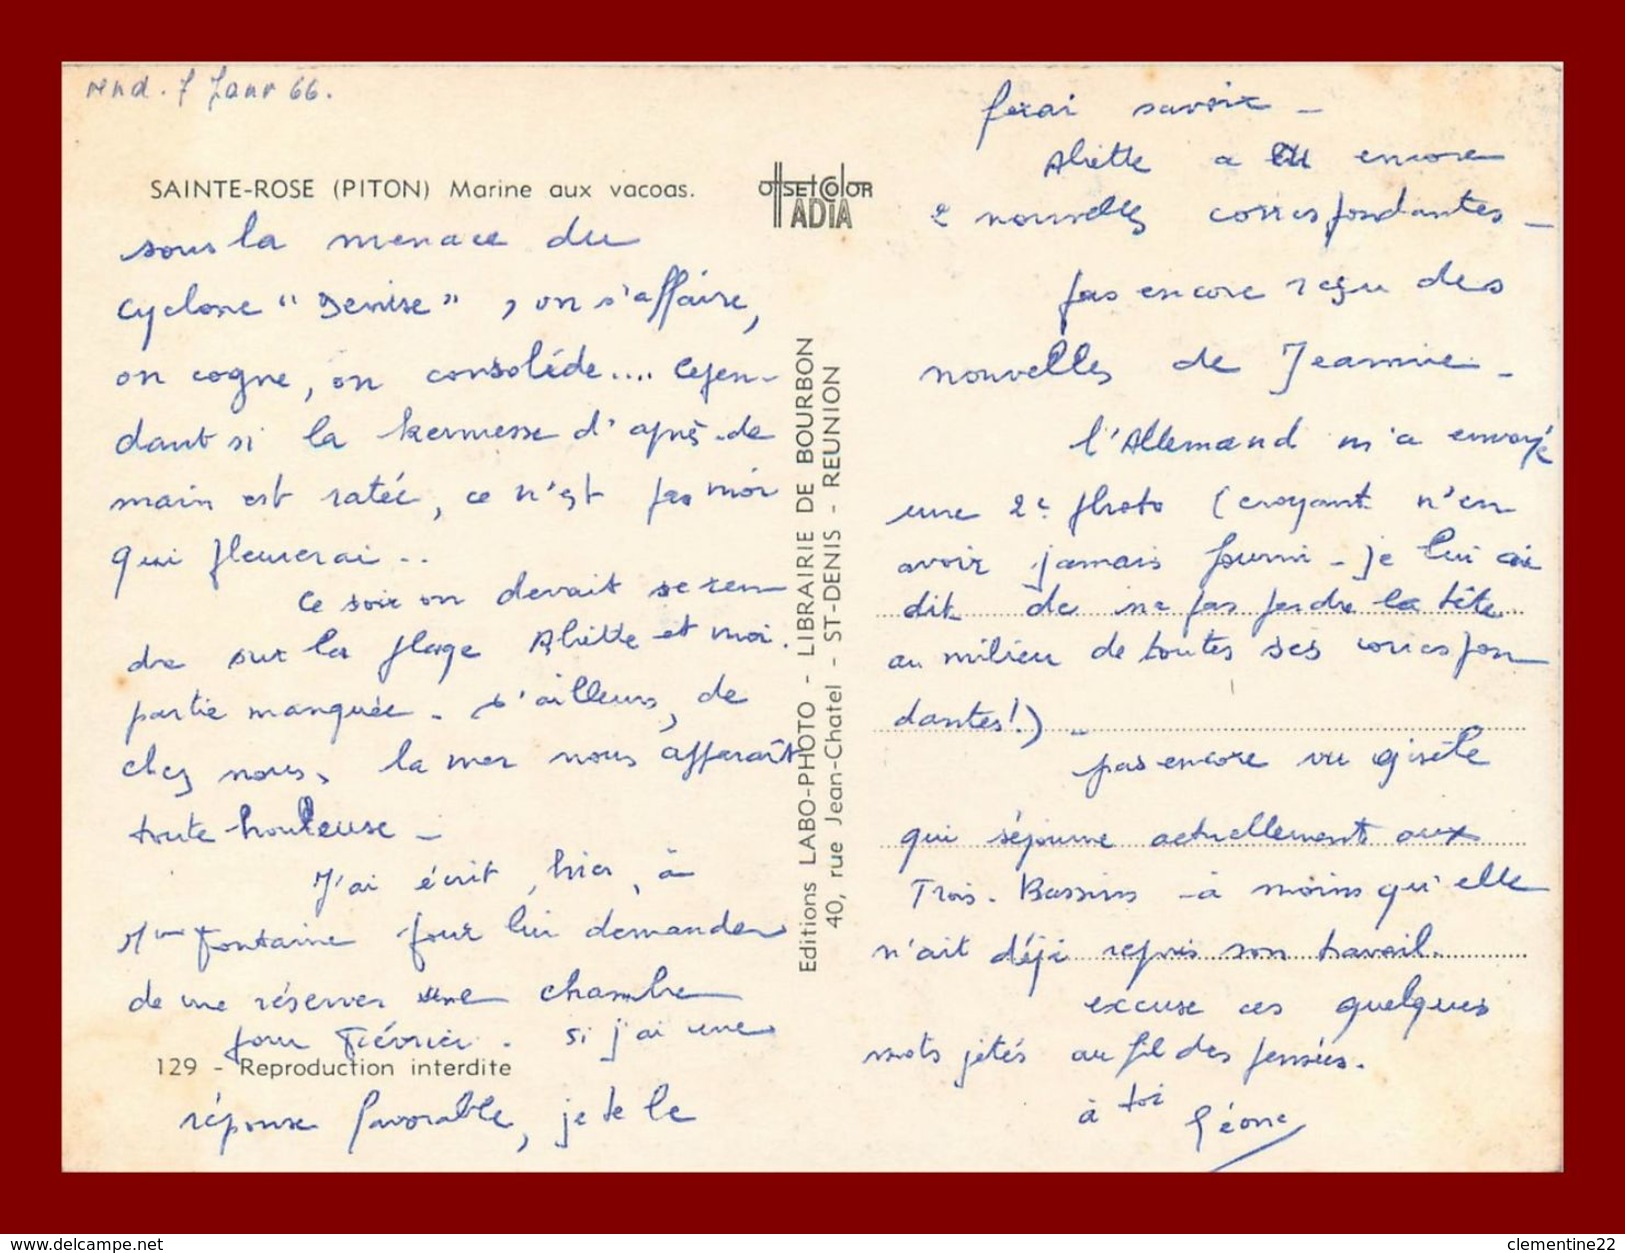 vend. 7 Janv 66.
SAINTE-ROSE (PITON) Marine aux vacoas.
OffSEtColOR
ADIA
sous la menace du
cyclone "Denise", on s'affaire,
on cogne, on consolide.... Cepen-
dant si la kermesse d'après-de
main est ratée, ce n'est pas moi
qui pleurerai..
Ce soir on devait se ren
dre sur la plage Aliette et moi.
partie manquée. D'ailleurs, de
chez nous, la mer nous apparaît
toute houleuse -
J'ai écrit, hier, à
Mme Fontaine pour lui demander
de me réserver une chambre
pour Février. Si j'ai une
129 - Reproduction interdite
réponse favorable, je te le
Editions LABO-PHOTO - LIBRAIRIE DE BOURBON
40, rue Jean-Chatel - ST-DENIS - REUNION
ferai savoir -
Aliette a eu encore
2 nouvelles correspondantes -
pas encore reçu des
nouvelles de Jeannie -
l'Allemand m'a envoyé
une 2e photo (croyant n'en
avoir jamais fourni - je lui ai
dit de ne pas perdre la tête
au milieu de toutes ses correspon
dantes!) -
pas encore vu Gisèle
qui séjourne actuellement aux
Trois-Bassins - à moins qu'elle
n'ait déjà repris son travail.
excuse ces quelques
mots jetés au fil des pensées.
à toi Léone
delcampe.net
clementine22